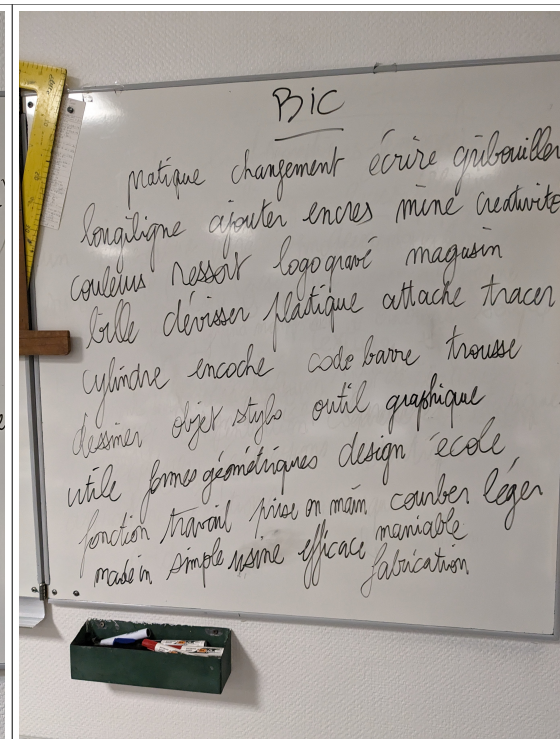 BIC
pratique changement écrire gribouiller
longiligne ajouter encres mine creativité
couleurs ressort logo gravé magasin
bille dévisser plastique attache tracer
cylindre encoche code barre trousse
dessiner objet stylo outil graphique
utile formes géométriques design école
fonction travail prise en main courber léger
made in simple usine efficace maniable
fabrication